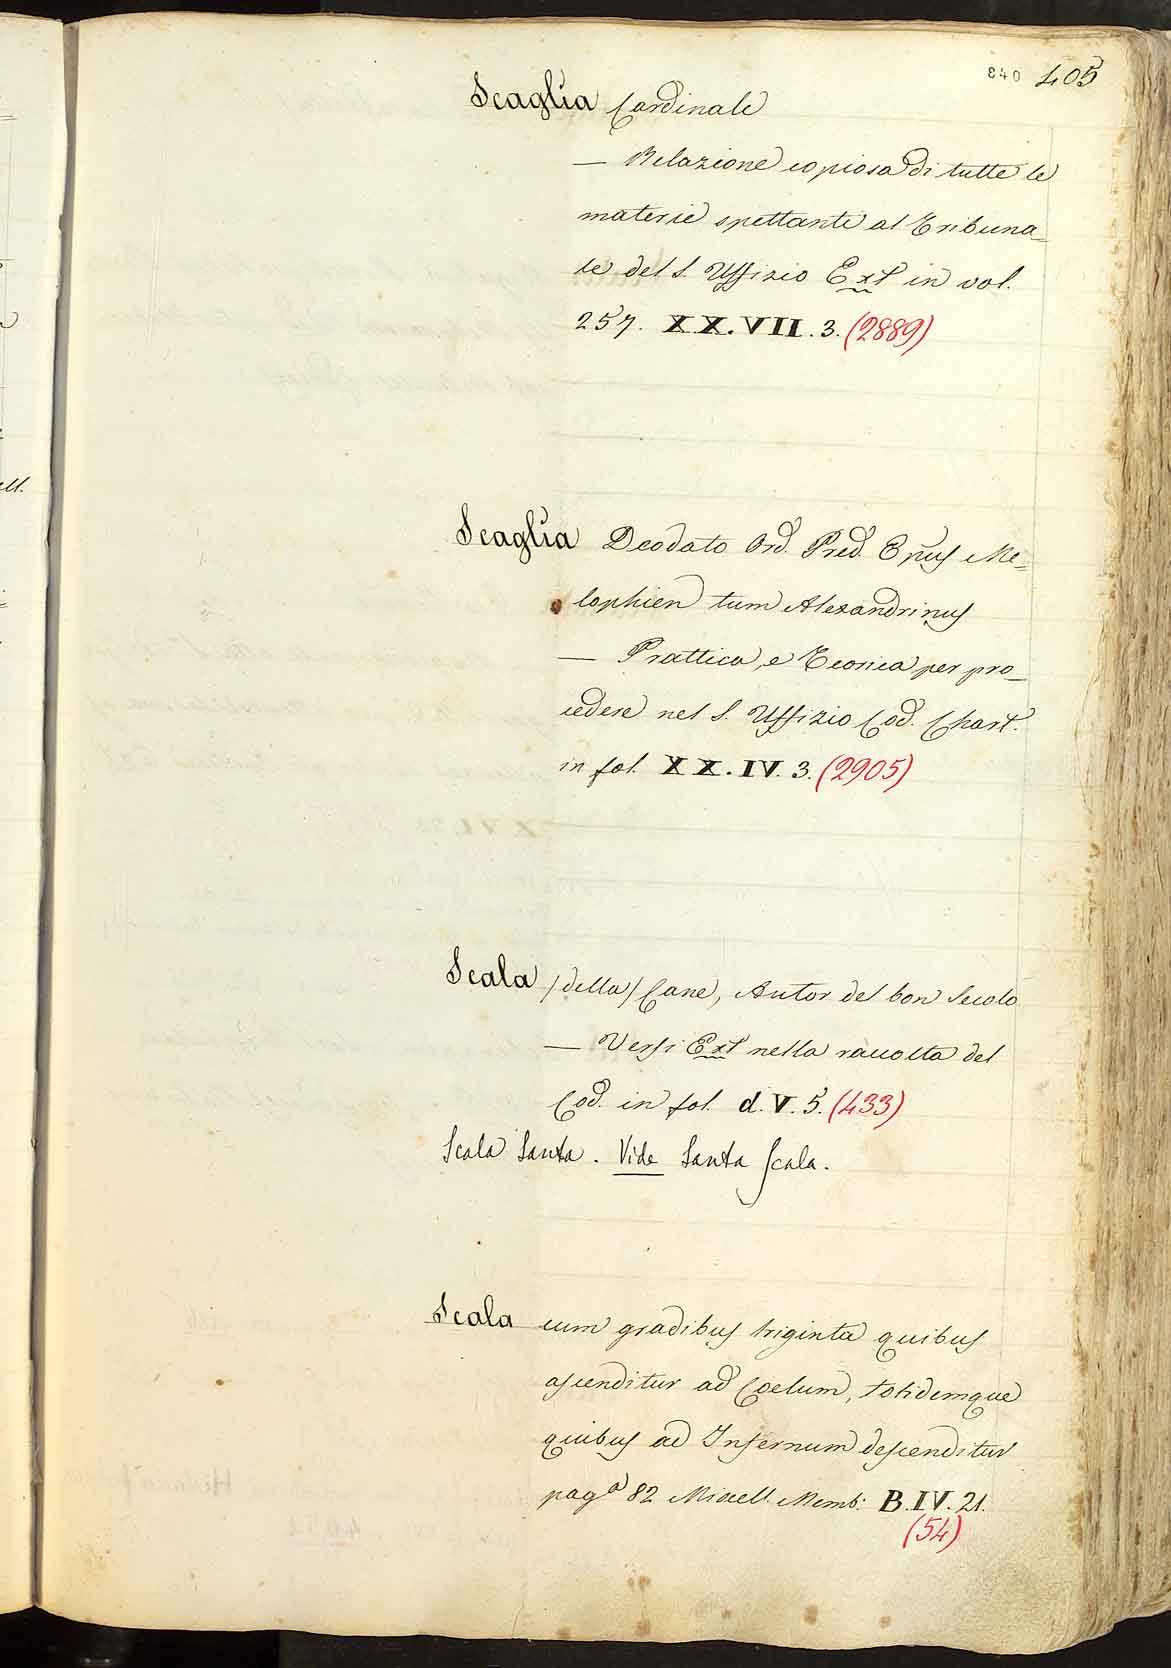 840 405
Scaglia Cardinale
— Relazione copiosa di tutte le
materie spettanti al Tribuna=
le del S. Uffizio Ext in vol.
257. XX.VII.3. (2889)
Scaglia Deodato Ord. Pred. Epus Me=
lophien tum Alexandrinus
— Prattica, e Teorica per pro=
cedere nel S. Uffizio Cod. Chart.
in fol. XX.IV.3. (2905)
Scala /della/ Cane, Autor del bon Secolo
— Versi Ext nella raccolta del
Cod. in fol. d.V.5. (433)
Scala Santa. Vide Santa Scala.
Scala cum gradibus triginta quibus
ascenditur ad Coelum, totidemque
quibus ad Infernum descenditur
pag.ª 82 Miscell. Memb: B.IV.21.
(54)
ell.